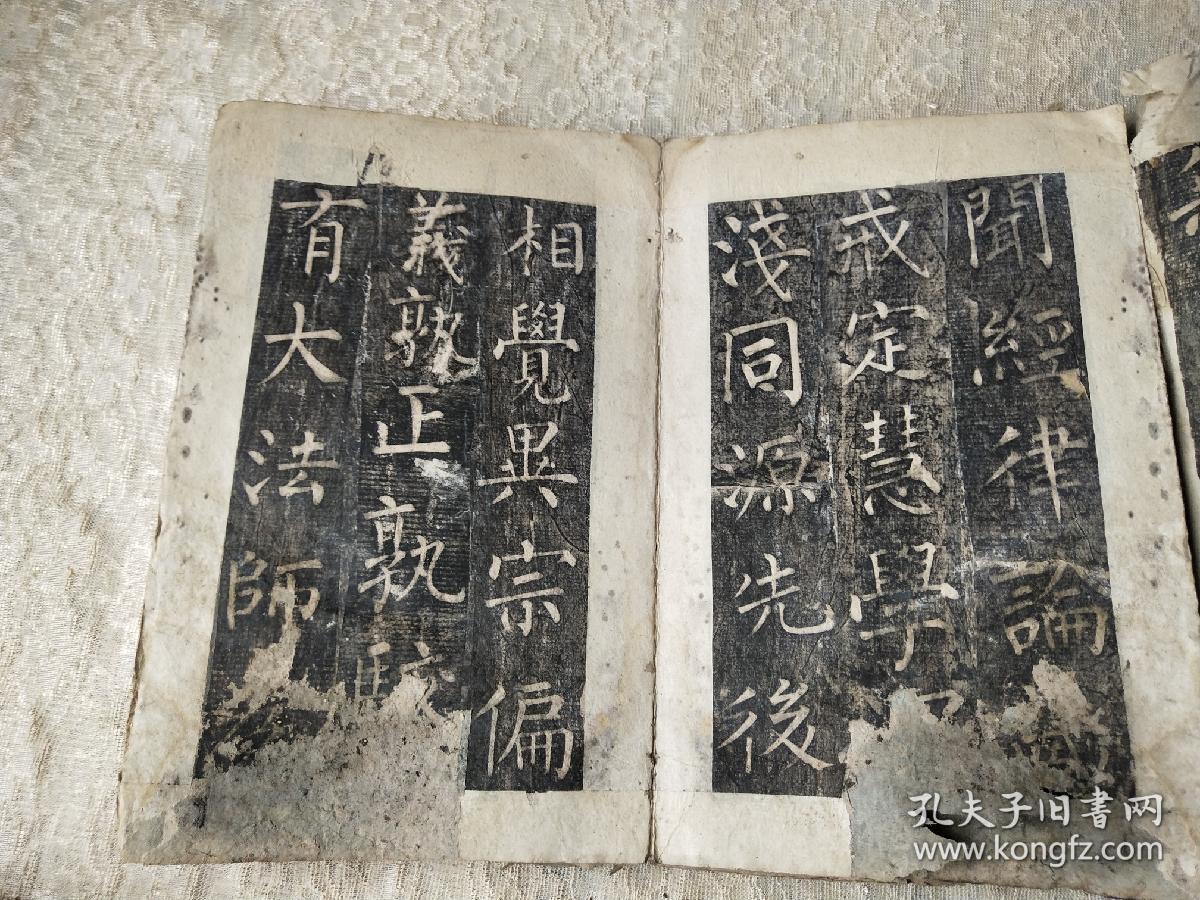 聞經律論
戒定慧學
淺同源先後
相覺異宗偏
義孰正孰駮
有大法師
孔夫子旧书网
www.kongfz.com